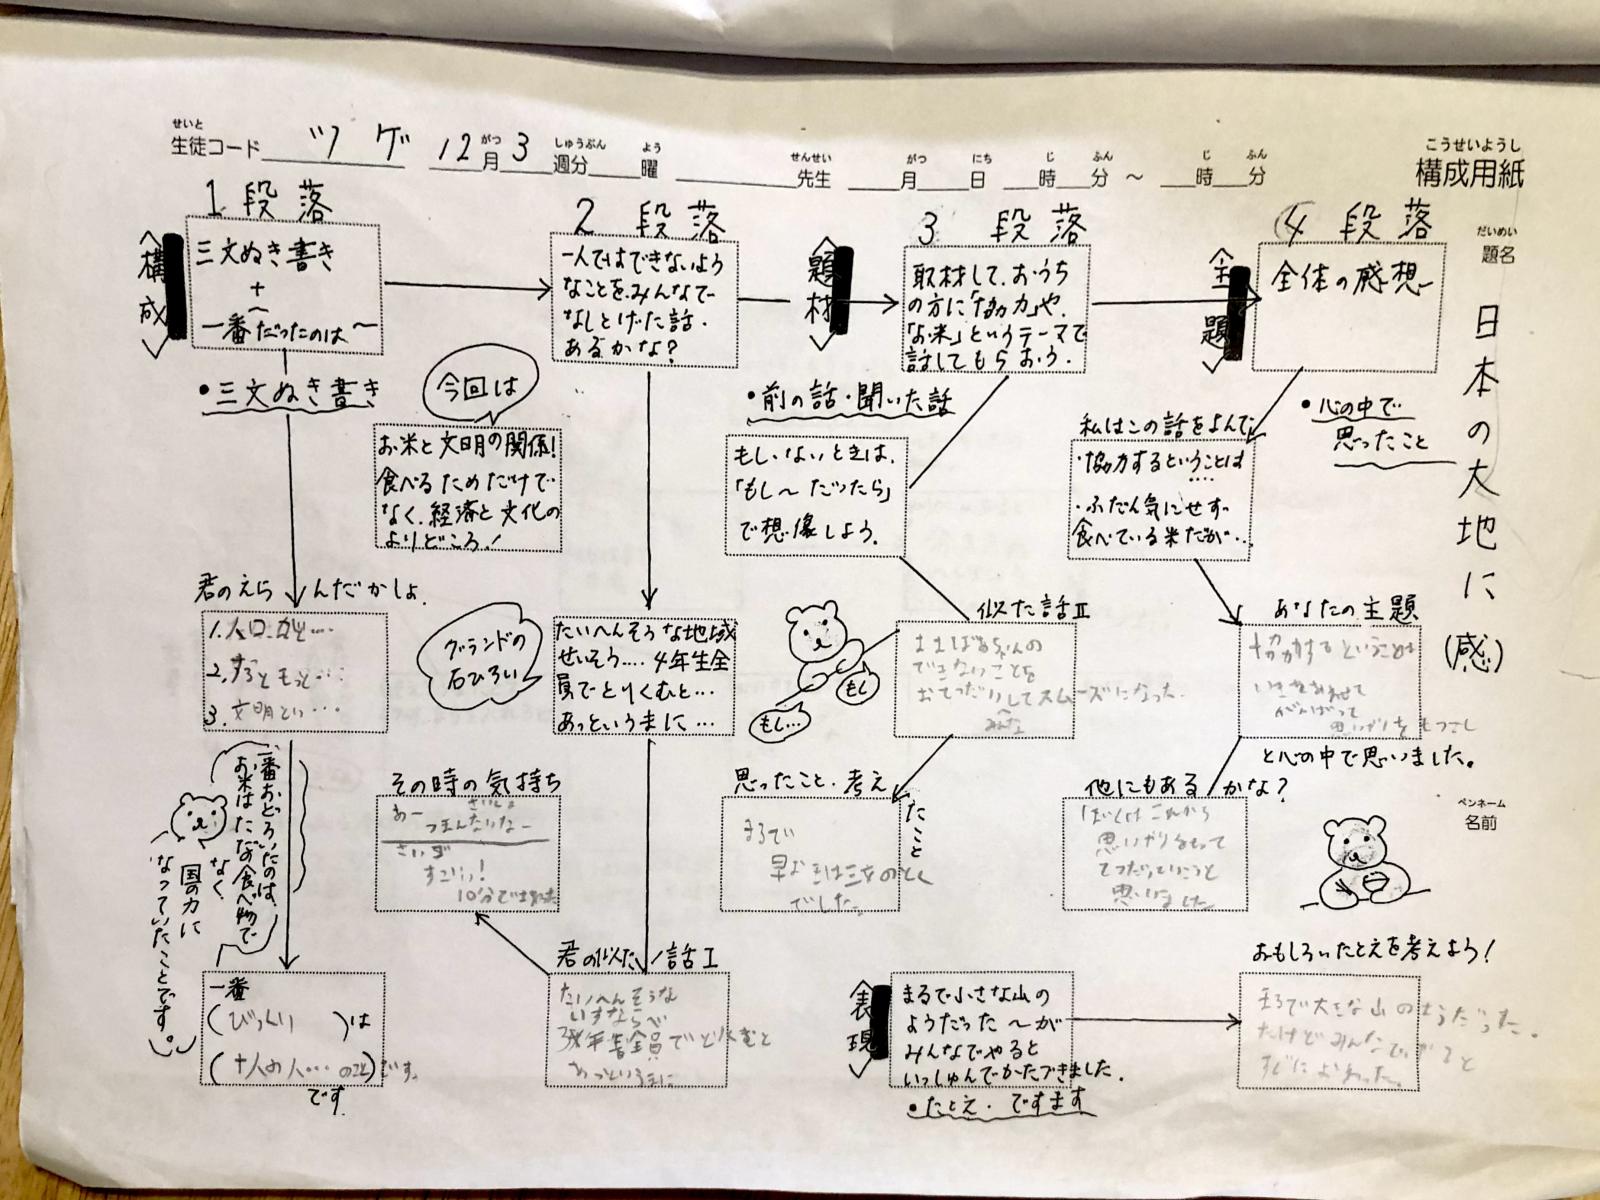 せいと
生徒コード ツゲ 12月3週分 曜 先生 月 日 時 分 ～ 時 分
がつ しゅうぶん よう せんせい がつ にち じ ふん じ ふん
こうせいようし
構成用紙
だいめい
題名
日本の大地に (感)
ペンネーム
名前
1段落
構成
三文ぬき書き
+
一番だったのは～
・三文ぬき書き
君のえらんだかしょ
1.人口
2.
3.文明
一番おどろいたのは、
お米はただの食べ物で
なく、
国の力に
なっていたことです。
一番
(びっくり)は
(十人の人…のこと)です。
です
2段落
一人ではできないよう
なことを、みんなで
なしとげた話、
あるかな?
今回は
お米と文明の関係!
食べるためだけで
なく、経済と文化の
よりどころ!
グランドの
石ひろい
たいへんそうな地域
せいそう…。4年生全
員でとりくむと…
あっというまに…
その時の気持ち
さいしょ
あー
つまんないなー
すごいっ!
10分で
君の似た話I
たいへんそうな
いすならべ
全員でとりくむと
あっというまに
題材
3段落
取材して、おうち
の方に「協力」や、
「お米」というテーマで
話してもらおう。
・前の話・聞いた話
もし、ないときは、
「もし～だったら」
で想像しよう。
もし…
もし
似た話II
おばあちゃんの
できないことを
おてつだいしてスムーズになった。
みんな
思ったこと・考えたこと
まるで
でした。
表現
まるで小さな山の
ようだった～が
みんなでやると
いっしゅんでかたづきました。
・たとえ・ですます
全題
4段落
全体の感想
・心の中で
思ったこと
私はこの話をよんで、
・協力するということは…
・ふだん気にせず
食べている米だが…
あなたの主題
協力するということは
がんばって
思いやりをもつ
と心の中で思いました。
他にもあるかな?
ぼくはこれから
思いやりをもって
てつだっていこうと
思いました
おもしろいたとえを考えよう!
まるで大きな山のようだった。
だけどみんなでやると
すぐにおわった。